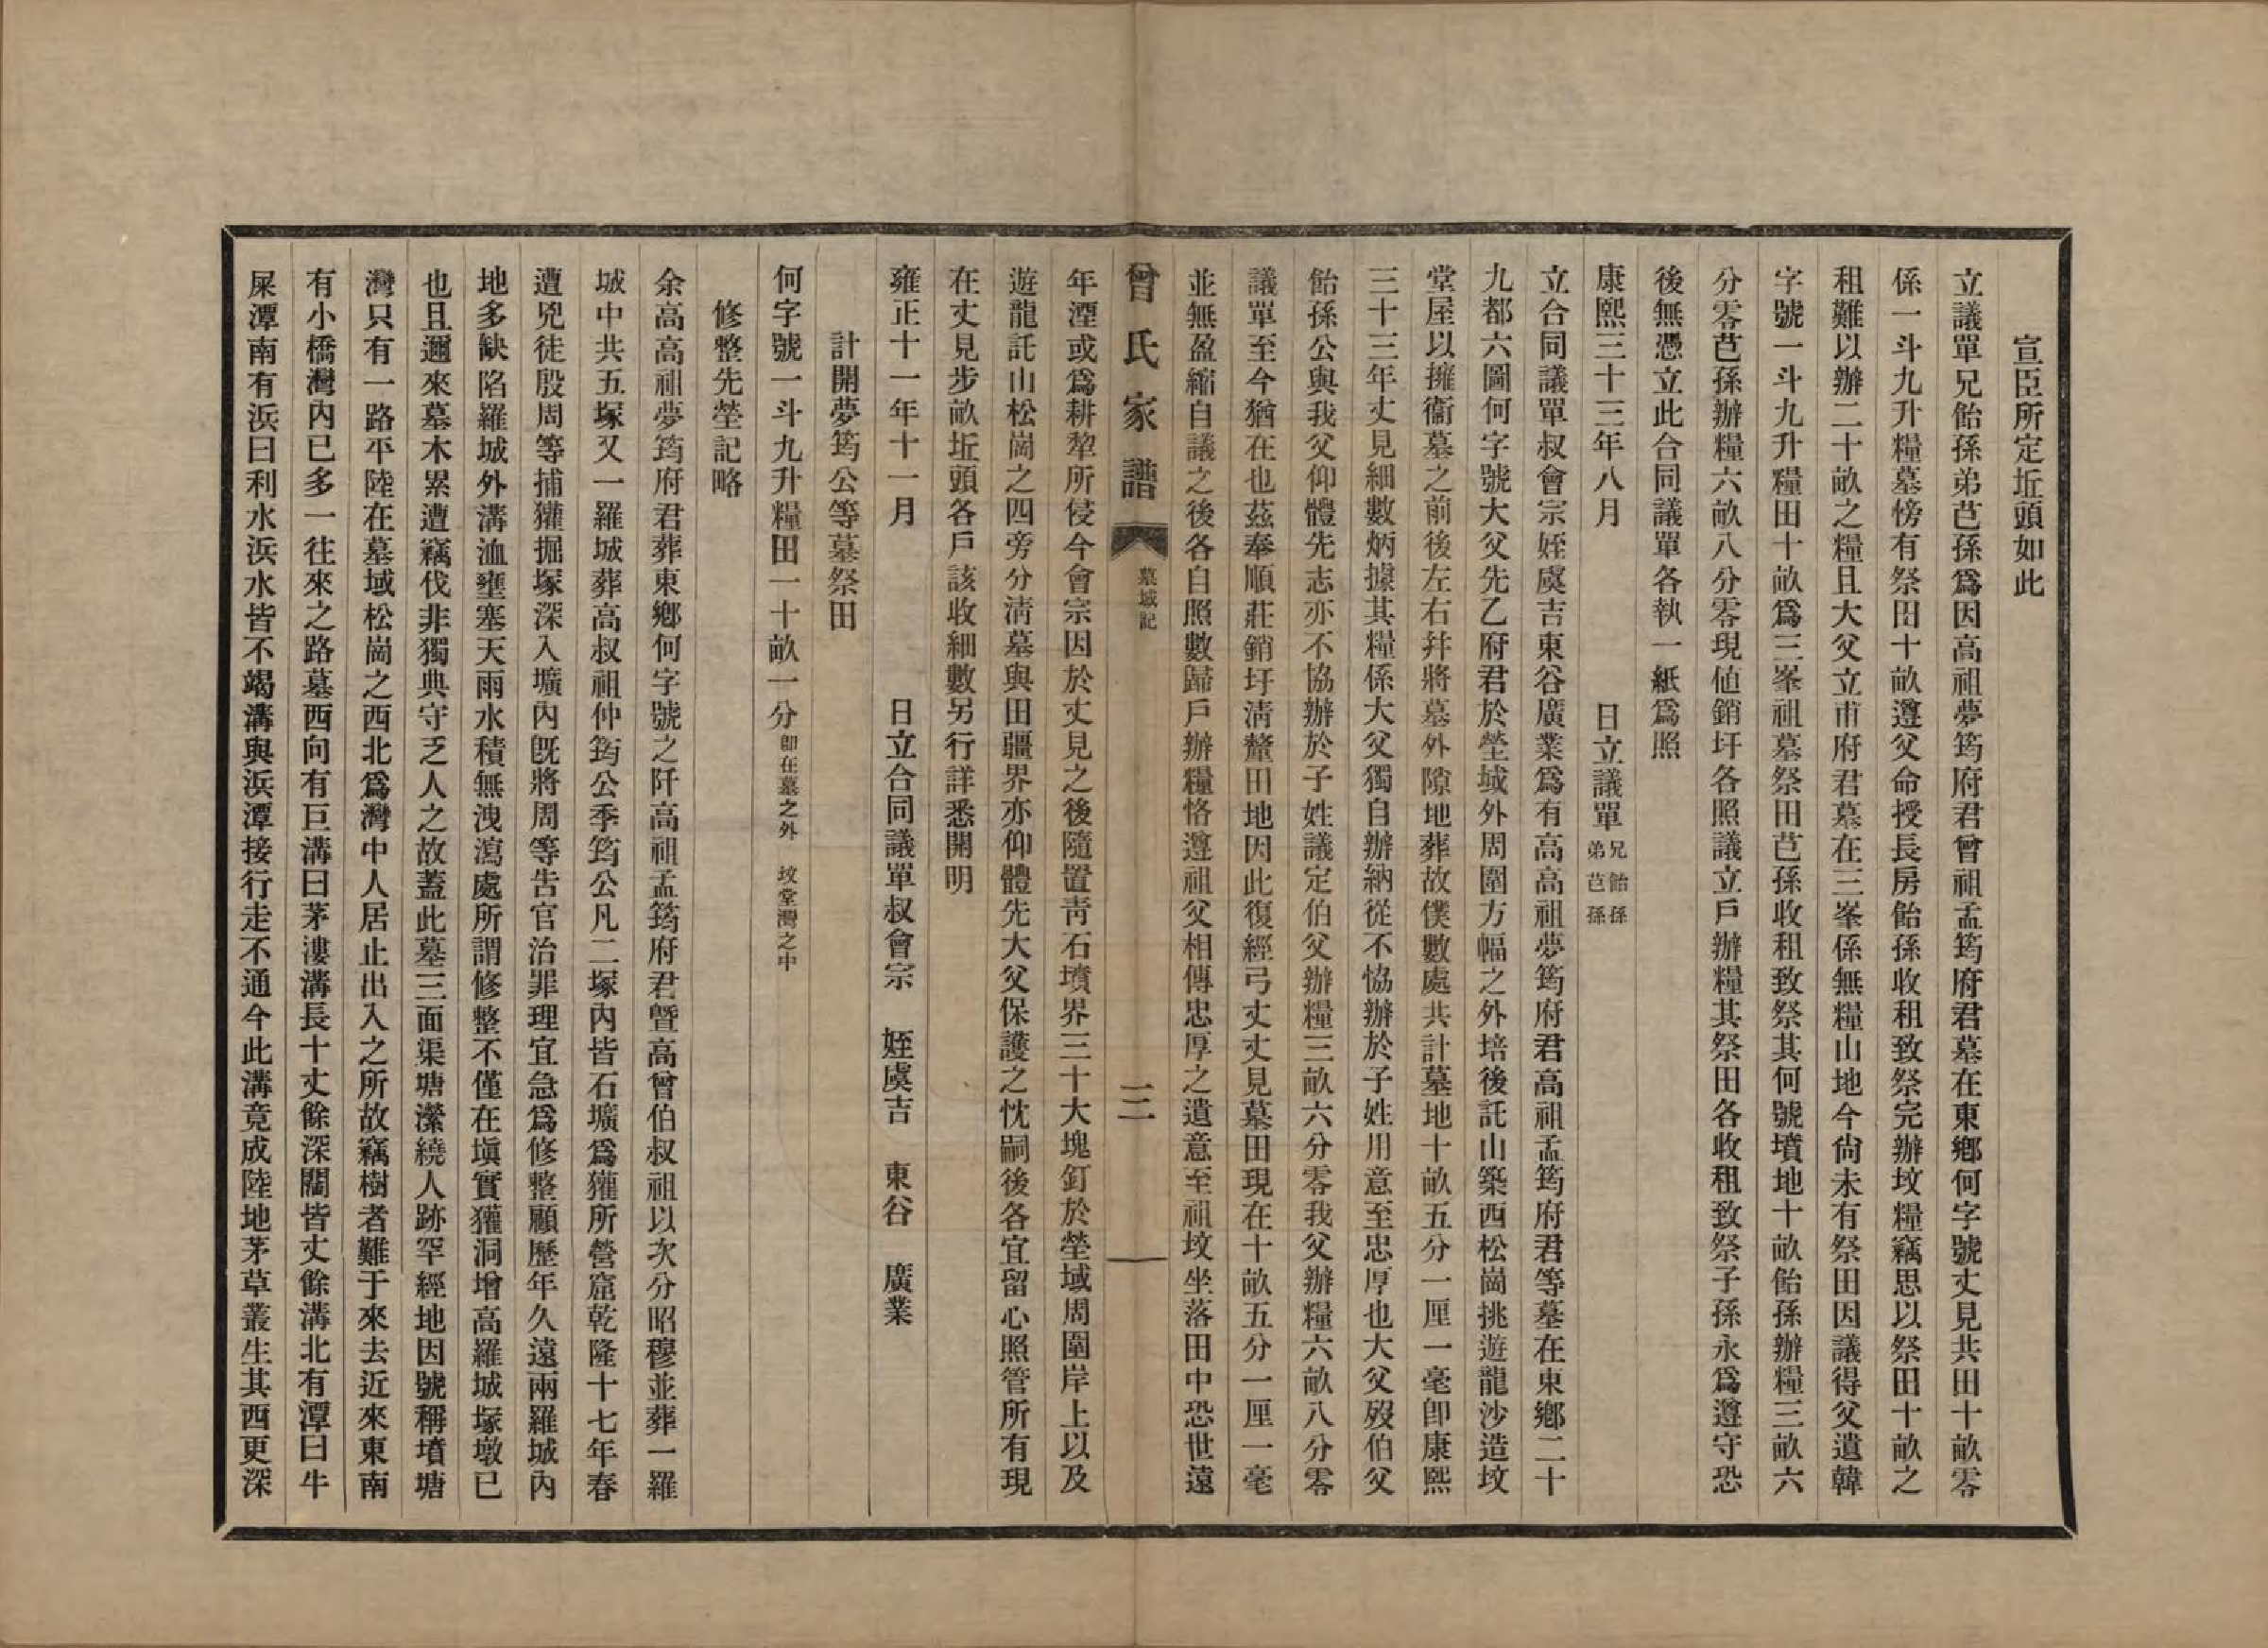 宣臣所定坵頭如此
立議單兄飴孫弟芑孫爲因高祖夢筠府君曾祖孟筠府君墓在東鄉何字號丈見共田十畝零
係一斗九升糧墓傍有祭田十畝遵父命授長房飴孫收租致祭完辦坟糧竊思以祭田十畝之
租難以辦二十畝之糧且大父立甫府君墓在三峯係無糧山地今尙未有祭田因議得父遺韓
字號一斗九升糧田十畝爲三峯祖墓祭田芑孫收租致祭其何號墳地十畝飴孫辦糧三畝六
分零芑孫辦糧六畝八分零現値銷圩各照議立戶辦糧其祭田各收租致祭子孫永爲遵守恐
後無憑立此合同議單各執一紙爲照
康熙三十三年八月　日立議單兄飴孫弟芑孫
立合同議單叔會宗姪虞吉東谷廣業爲有高高祖夢筠府君高祖孟筠府君等墓在東鄉二十
九都六圖何字號大父先乙府君於塋域外周圍方幅之外培後託山築西松崗挑遊龍沙造坟
堂屋以擁衞墓之前後左右幷將墓外隙地葬故僕數處共計墓地十畝五分一厘一毫卽康熙
三十三年丈見細數炳據其糧係大父獨自辦納從不恊辦於子姓用意至忠厚也大父歿伯父
飴孫公與我父仰體先志亦不協辦於子姓議定伯父辦糧三畝六分零我父辦糧六畝八分零
議單至今猶在也茲奉順莊銷圩淸釐田地因此復經弓丈丈見墓田現在十畝五分一厘一毫
並無盈縮自議之後各自照數歸戶辦糧恪遵祖父相傳忠厚之遺意至祖坟坐落田中恐世遠
曾氏家譜　墓域記　三
年湮或爲耕犂所侵今會宗因於丈見之後隨置靑石墳界三十大塊釘於塋域周圍岸上以及
遊龍託山松崗之四旁分淸墓與田疆界亦仰體先大父保護之忱嗣後各宜留心照管所有現
在丈見步畝坵頭各戶該收細數另行詳悉開明
雍正十一年十一月　日立合同議單叔會宗　姪虞吉　東谷　廣業
計開夢筠公等墓祭田
何字號一斗九升糧田一十畝一分卽在墓之外　坟堂灣之中
修整先塋記略
余高高祖夢筠府君葬東鄉何字號之阡高祖孟筠府君曁高曾伯叔祖以次分昭穆並葬一羅
城中共五塚又一羅城葬高叔祖仲筠公季筠公凡二塚內皆石壙爲獾所營窟乾隆十七年春
遭兇徒殷周等捕獾掘塚深入壙內旣將周等吿官治罪理宜急爲修整顧歷年久遠兩羅城內
地多缺陷羅城外溝洫壅塞天雨水積無洩瀉處所謂修整不僅在塡實獾洞增高羅城塚墩已
也且邇來墓木累遭竊伐非獨典守乏人之故蓋此墓三面渠塘瀠繞人跡罕經地因號稱墳塘
灣只有一路平陸在墓域松崗之西北爲灣中人居止出入之所故竊樹者難于來去近來東南
有小橋灣內已多一往來之路墓西向有巨溝曰茅漊溝長十丈餘深闊皆丈餘溝北有潭曰牛
屎潭南有浜曰利水浜水皆不竭溝與浜潭接行走不通今此溝竟成陸地茅草叢生其西更深